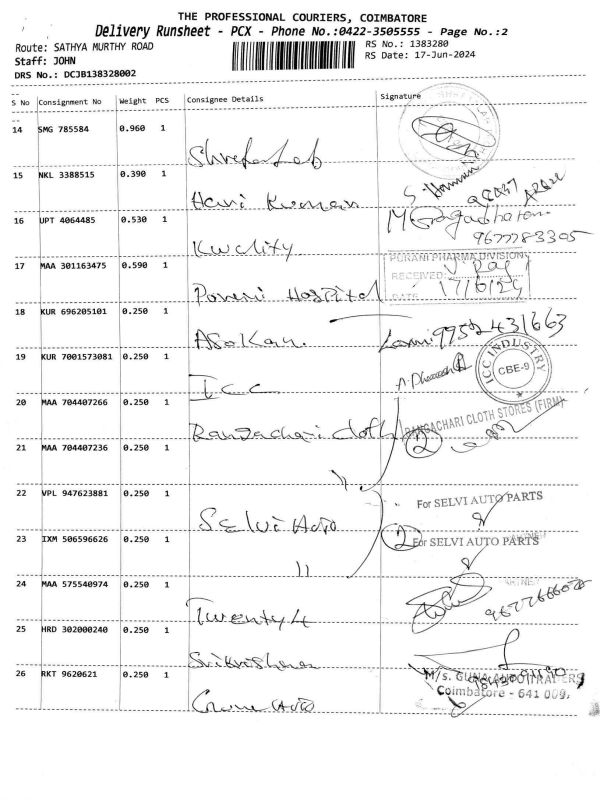 THE PROFESSIONAL COURIERS, COIMBATORE
Delivery Runsheet - PCX - Phone No.:0422-3505555 - Page No.:2
Route: SATHYA MURTHY ROAD
RS No.: 1383280
Staff: JOHN
RS Date: 17-Jun-2024
DRS No.: DCJB138328002
S No Consignment No Weight PCS Consignee Details Signature
14 SMG 785584 0.960 1
15 NKL 3388515 0.390 1
Hari Kumar
16 UPT 4064485 0.530 1
9677783305
Kwality
17 MAA 301163475 0.590 1
PURANI PHARMA DIVISION
RECEIVED:
DATE 17/6/24
Purani Hospital
18 KUR 696205101 0.250 1
Asokan
9952431663
19 KUR 7001573081 0.250 1
ICC
ICC INDUSTRY
CBE-9
20 MAA 704407266 0.250 1
Rangachari cloth
RANGACHARI CLOTH STORES (FIRM)
2
21 MAA 704407236 0.250 1
"
22 VPL 947623881 0.250 1
For SELVI AUTO PARTS
Selvi Auto
23 IXM 506596626 0.250 1
2
For SELVI AUTO PARTS
"
24 MAA 575540974 0.250 1
Twenty 4
25 HRD 302000240 0.250 1
Srikrishna
26 RKT 9620621 0.250 1
M/s. GUNA AUTO
Coimbatore - 641 009.
Guna Auto